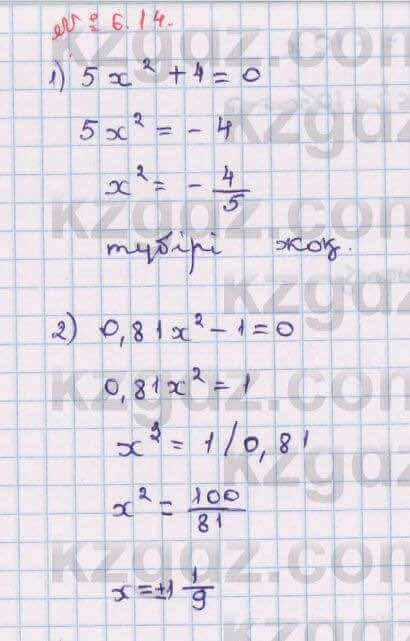 № 6.14.
1) 5x² + 4 = 0
5x² = - 4
x² = - 4/5
түбірі жоқ.
2) 0,81x² - 1 = 0
0,81x² = 1
x² = 1/0,81
x² = 100/81
x = ±1 1/9
kzgdz.com